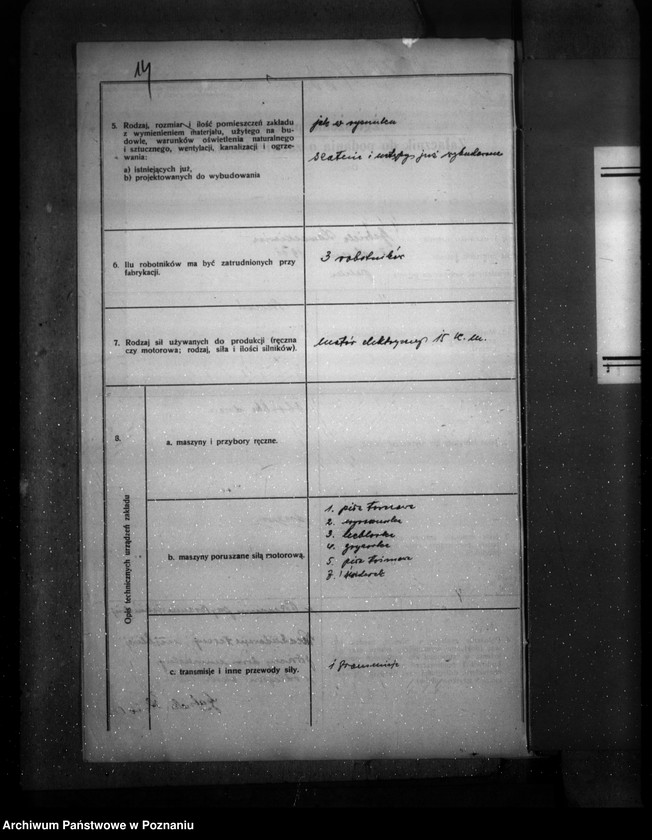 14
5. Rodzaj, rozmiar i ilość pomieszczeń zakładu
z wymienieniem materjału, użytego na bu-
dowie, warunków oświetlenia naturalnego
i sztucznego, wentylacji, kanalizacji i ogrze-
wania:
a) istniejących już,
b) projektowanych do wybudowania
jak w rysunku
już wybudowane
6. Ilu robotników ma być zatrudnionych przy
fabrykacji.
3 robotników
7. Rodzaj sił używanych do produkcji (ręczna
czy motorowa; rodzaj, siła i ilości silników).
motor elektryczny 15 k. m.
8.
Opis technicznych urządzeń zakładu
a. maszyny i przybory ręczne.
b. maszyny poruszane siłą motorową.
1. piła
2.
3. heblarka
4.
5. piła
c. transmisje i inne przewody siły.
1 transmisja
Archiwum Państwowe w Poznaniu